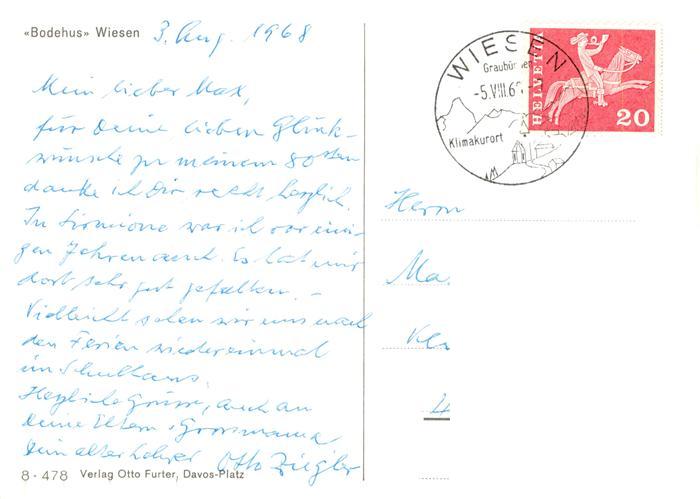 «Bodehus» Wiesen 3. Aug. 1968
Mein lieber Max,
für Deine lieben Glück-
wünsche zu meinem 80sten
danke ich Dir recht herzlich.
In Sirmione war ich vor eini-
gen Jahren auch. Es hat mir
dort sehr gut gefallen. –
Vielleicht sehen wir uns nach
den Ferien wieder einmal
im Schulhaus.
Herzliche Grüsse, auch an
Deine Eltern + Grossmama
Dein alter Lehrer Otto Ziegler
8 - 478 Verlag Otto Furter, Davos-Platz
WIESEN
Graubünden
-5.VIII.6
Klimakurort
HELVETIA
20
Herrn
Ma